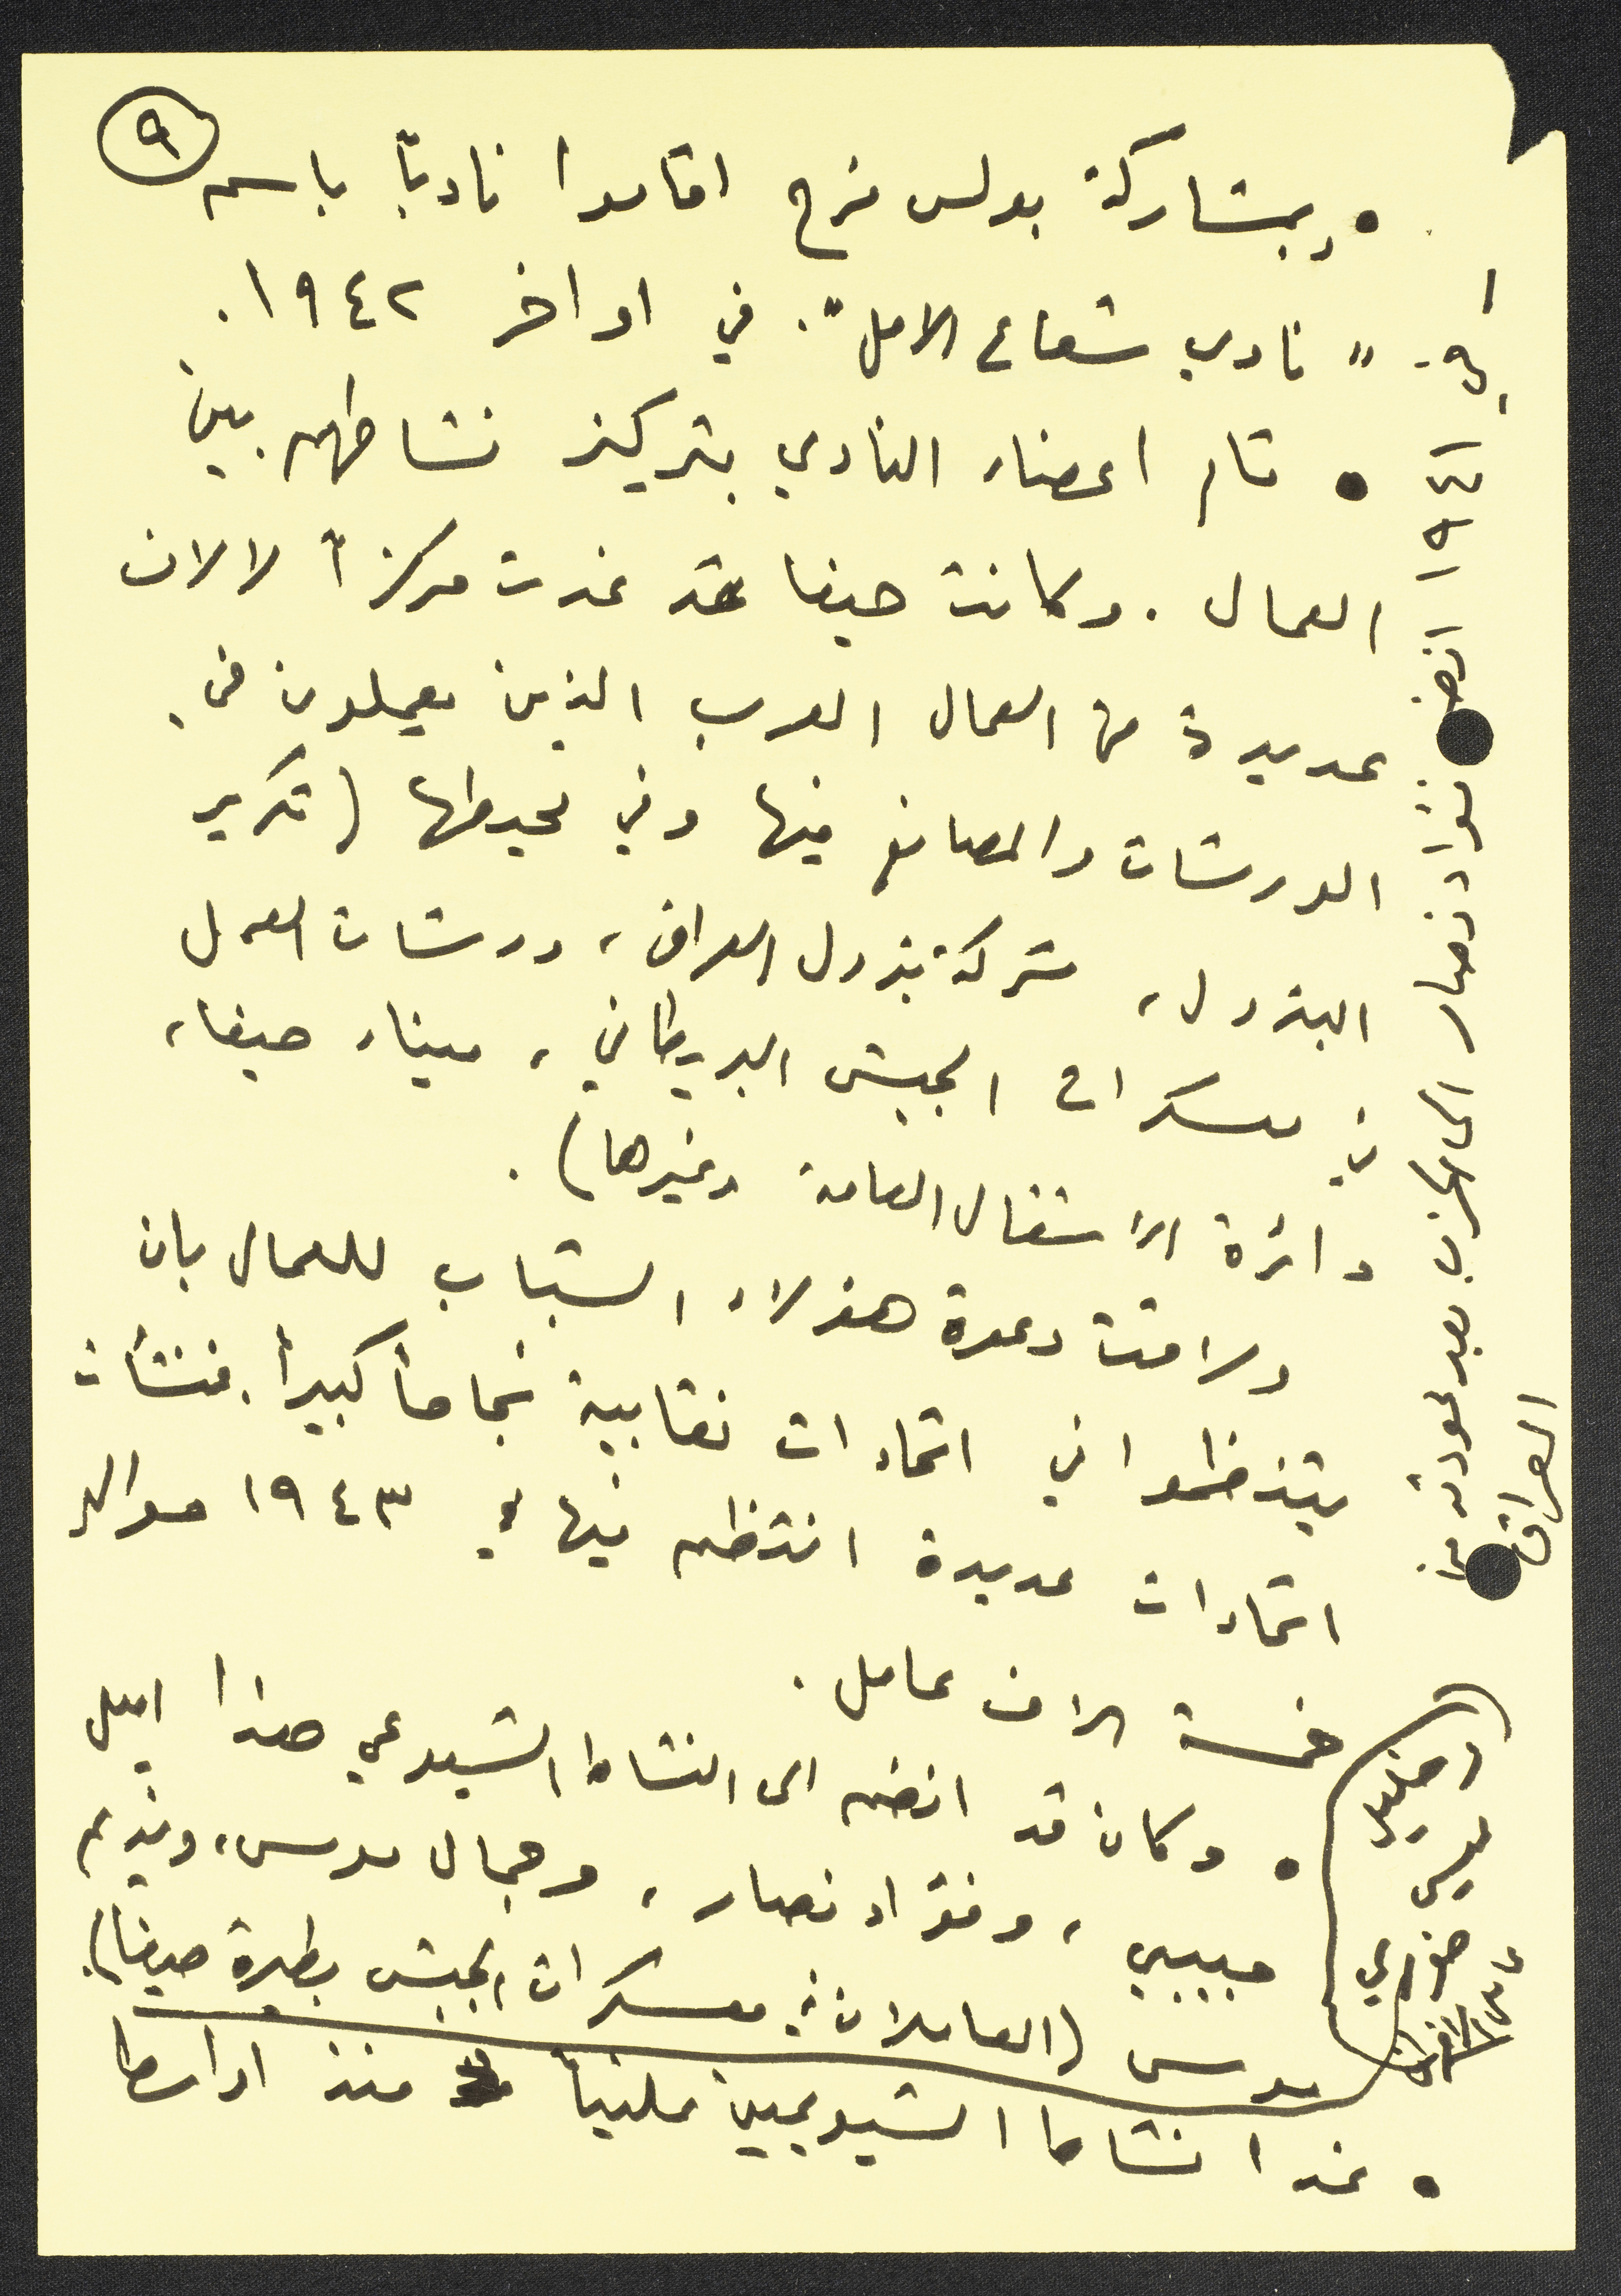 ٩
• وبمشاركة بولس فرح اقاموا ناديًا باسم
" نادي شعاع الامل". في اواخر ١٩٤٢.
• قام اعضاء النادي بتركيز نشاطهم بين
العمال. وكانت حيفا قد غدت مركزاً لالاف
عديدة من العمال العرب الذين يعملون في
الورشات والمصانع فيها وفي محيطها (تكرير
البترول، شركة بترول العراق، ورشات العمل
في معسكرات الجيش البريطاني، ميناء حيفا،
دائرة الاشغال العامة وغيرها).
ولاقت دعوة هؤلاء الشباب للعمال بان
يتنظموا في اتحادات نقابية نجاحاً كبيراً. فنشأت
اتحادات عديدة انتظم فيها في ١٩٤٣ حوالي
خمسة الاف عامل.
• وكان قد انضم الى النشاط الشيوعي هذا اميل
حبيبي، وفؤاد نصار، وجمال موسى، ونديم
موسى (العاملان في معسكرات الجيش بطيرة حيفا).
• غدا نشاط الشيوعيين علنياً منذ اواسط
في ١٩٤١ انضم فؤاد نصار الى الحزب بعد عودته من
العراق
(وخليل
خوري